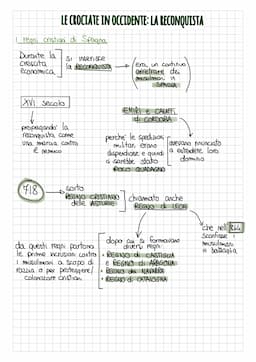 LE CROCIATE IN OCCIDENTE: LA RECONQUISTA
I regni cristiani di Spagna
Durante la
crescita
economica
si inserisce
la RECONQUISTA
era un continuo
arretrare dei
musulmani in
SPAGNA
XVI secolo
propaganda la
reconquista come
una marcia contro
il nemico
EMIRI e CALIFFI
di CORDOBA
perché le spedizioni
militari erano
dispendiose e quindi
ci sarebbe stato
POCO GUADAGNO
avevano rinunciato
a estendere loro
dominio
718
sorto
REGNO CRISTIANO
delle ASTURIE
chiamato anche
REGNO di LEON
che nel
sconfisse i
musulmani
in battaglia
da questi regni partono
le prime incursioni contro
i musulmani a scopo di
razzia o per proteggere/
colonizzare cristiani
dopo cui si formarono
diversi regni
• REGNO di CASTIGLIA
• REGNO di ARAGONA
• REGNO di NAVARRA